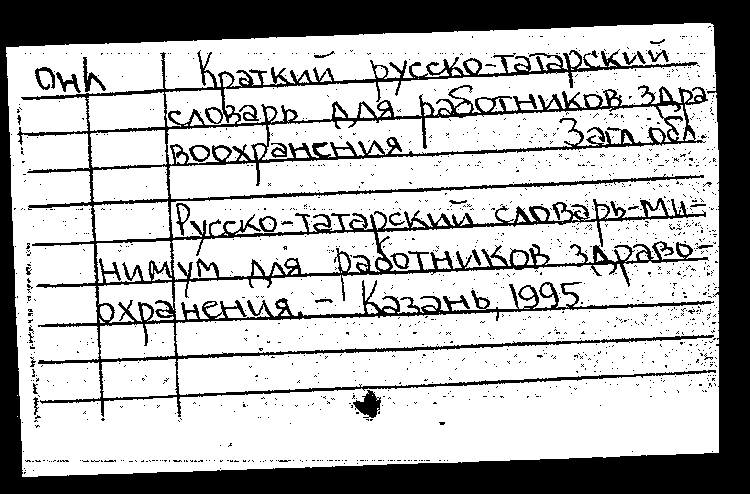 ОНЛ Краткий русско-татарский
словарь для работников здра-
воохранения. Загл. обл.
Русско-татарский словарь-ми-
нимум для работников здраво-
охранения. - Казань, 1995